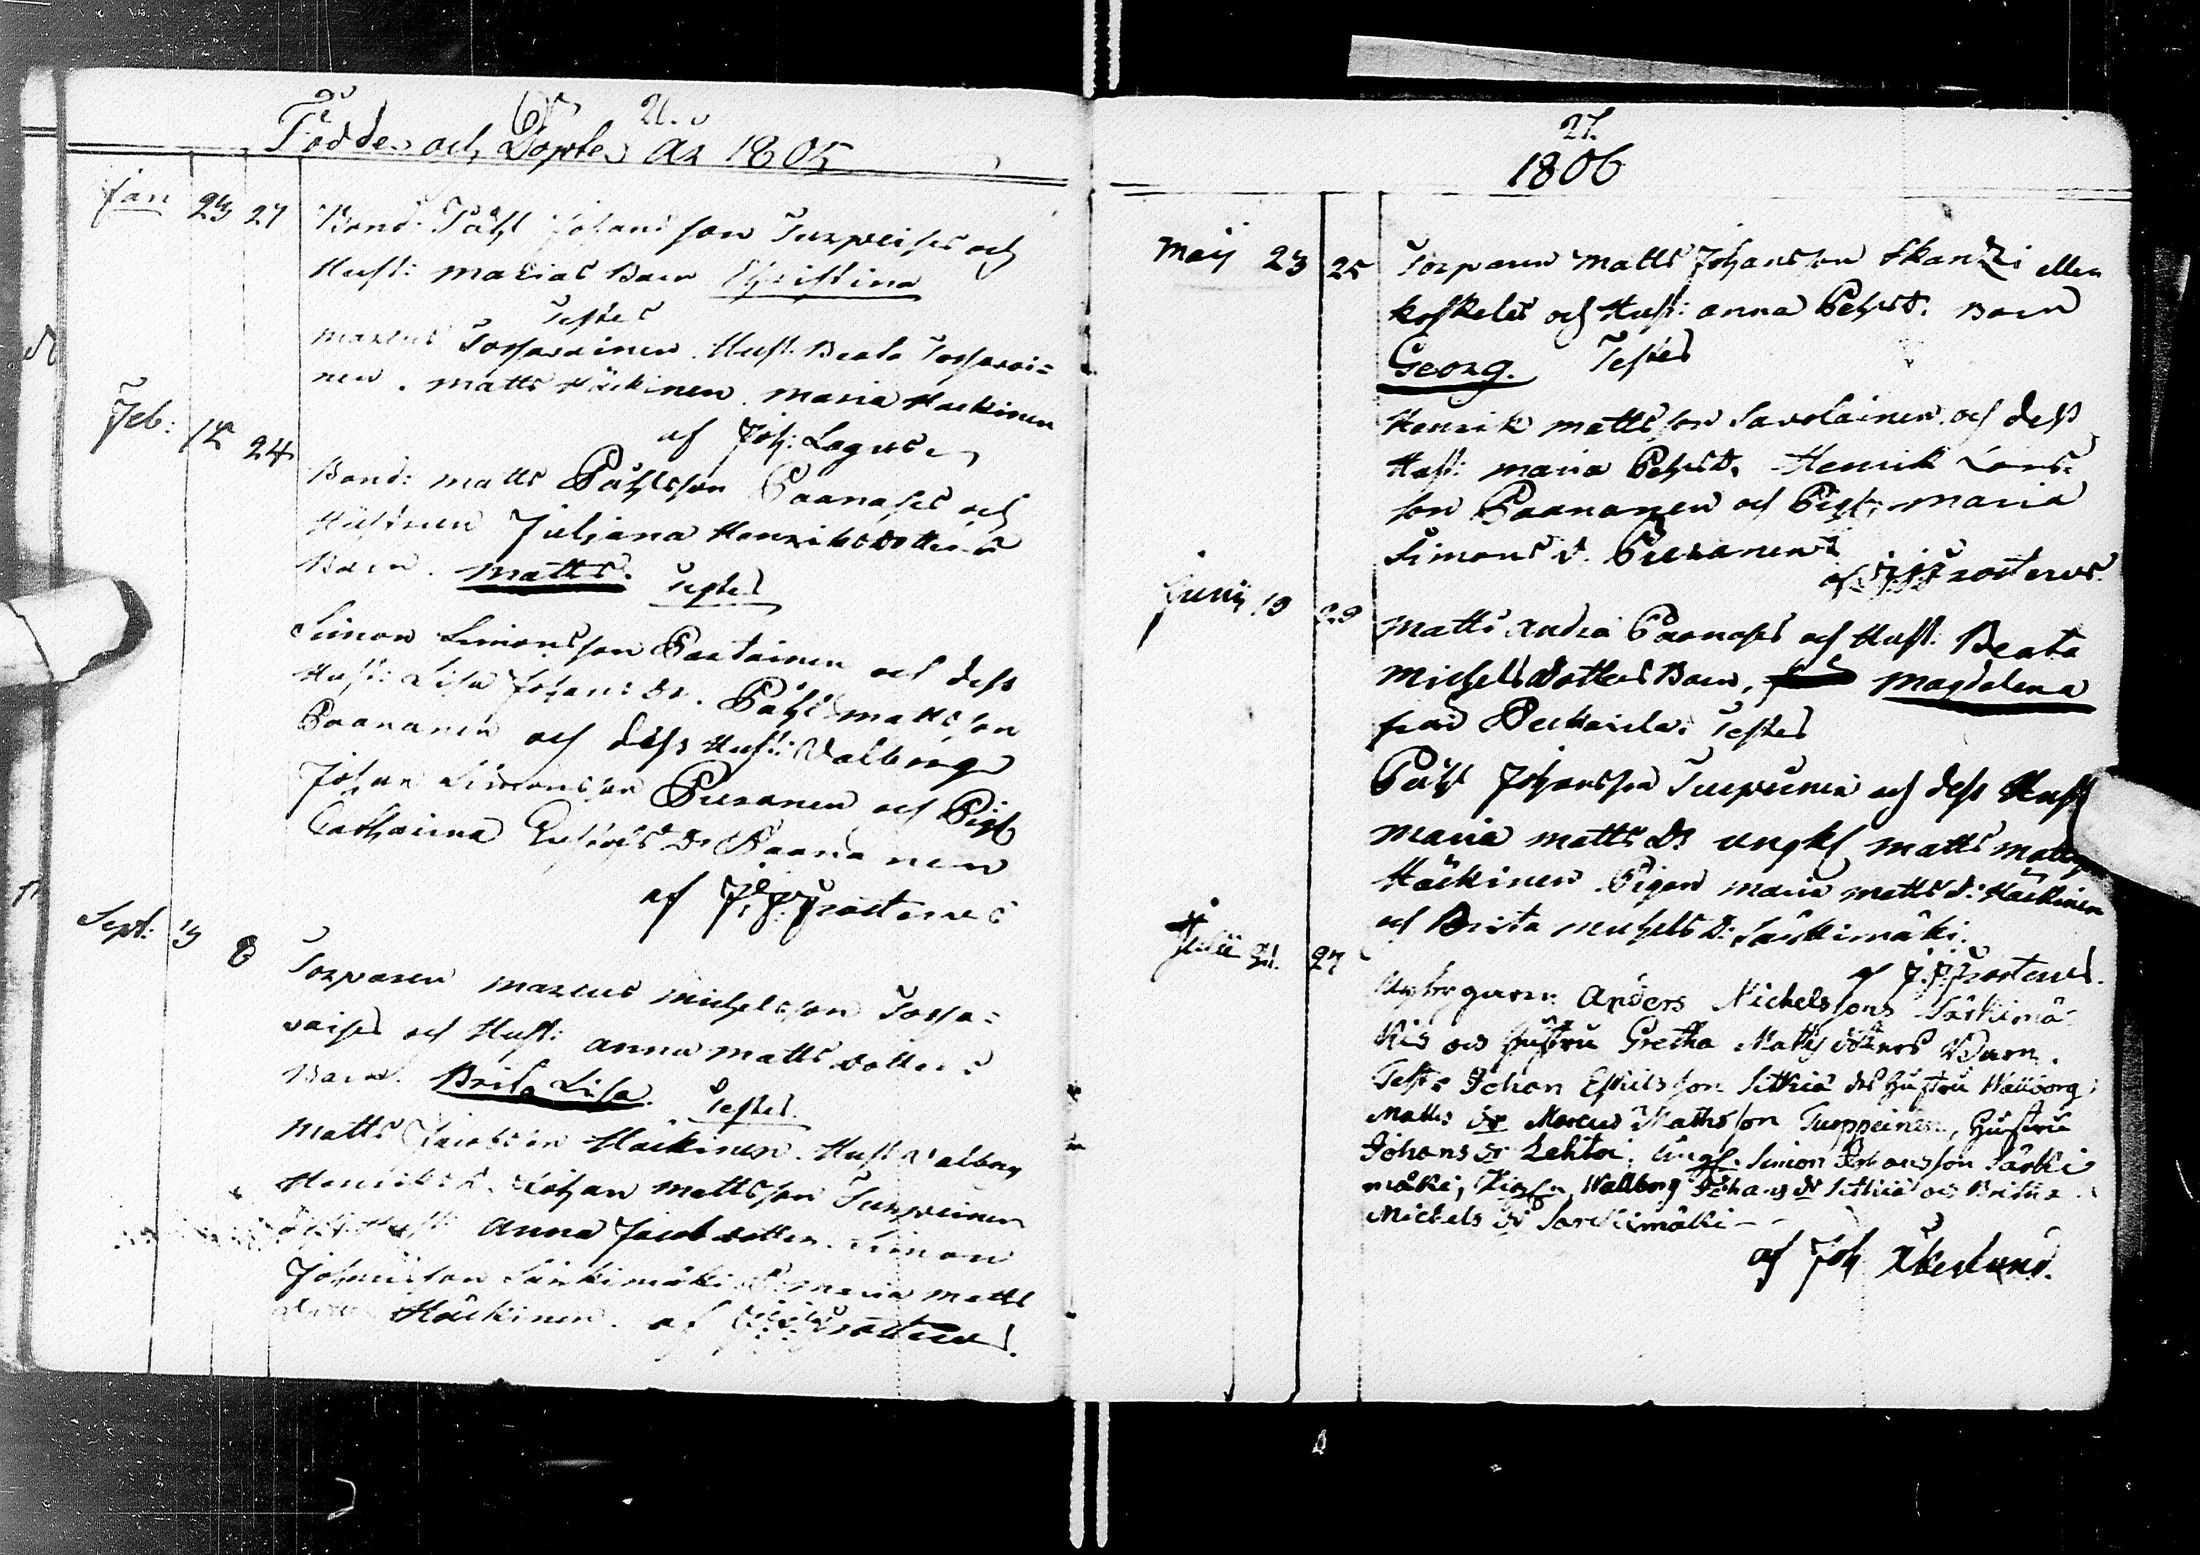 21.
Födde och Döpte År 1805
Jan 23 27 Bond: Påhl Johansson Turpeises och
Hust: Marias Barn Christina
Testes
Marcus Tossavainen. Hust. Beata Tossavai=
nen. Matts Häckinen. Maria Häckinen
af Joh: Lagus
Feb: 12 24 Bond: Matts Påhlsson Paanases och
Hustrun Juliana Henriksdotters
Barn. Matts. Testes
Simon Simonsson Partainen och dess
Hust: Lisa Johans Dr. Påhl Mattsson
Paananen och dess Hust: Valborg
Johan Simonsson Puranen och Pig.
Catharina Gustafs Dr Paananen
af J. J. Frosterus
Sept: 3 8 Torparen Marcus Michelsson Tossa=
vaises och Hust: Anna Matts dotters
Barn. Brita Lisa. Testes.
Matts Jacobsson Häckinen. Hust Valborg
Henriks d. Johan Mattsson Turpeinen
Hust: Anna Jacobsdotter. Simon
Johansson Särkimäki. P: Maria Matts
Häckinen. af J. J. Frosterus.
27.
1806
Maij 23 25 Torparen Matts Johansson Skantzi eller
Koskelas och Hust: Anna Pehrsd. Barn
Georg. Testes
Henrik Mattsson Savolainen och dess
Hust: Maria Pehrsd. Henrik Lars=
son Paananen och Pig: Maria
Simons d. Puranen
af J. J. Frosterus.
Junij 19 29 Matts Anders Paanases och Hust. Beata
Michelsdotters Barn, Magdalena
från Testes
Påhl Johansson Turpeinen och dess Hust
Maria Matts Dr ungk Matts Matts
Häckinen. Pigan Maria Matts d: Häckinen
och Brita Michels D: Särkimäki.
af J. J. Frosterus.
Julii 21. 27 Anders Michelssons Särkimä-
kis och Hustru Gretha Matts dotters Barn.
Test: Johan Eskilsson Sithia des Hustru Wallborg
Matts dr Marcus Mathsson Turppeinen, Hustru
Johans dr Lehtoi, Ungk: Simon Johansson Särki
mäki, Pigan Wallborg Johans dr Sithia och Britha
Michels dr Sarckimäki
af Joh Åkerlund.